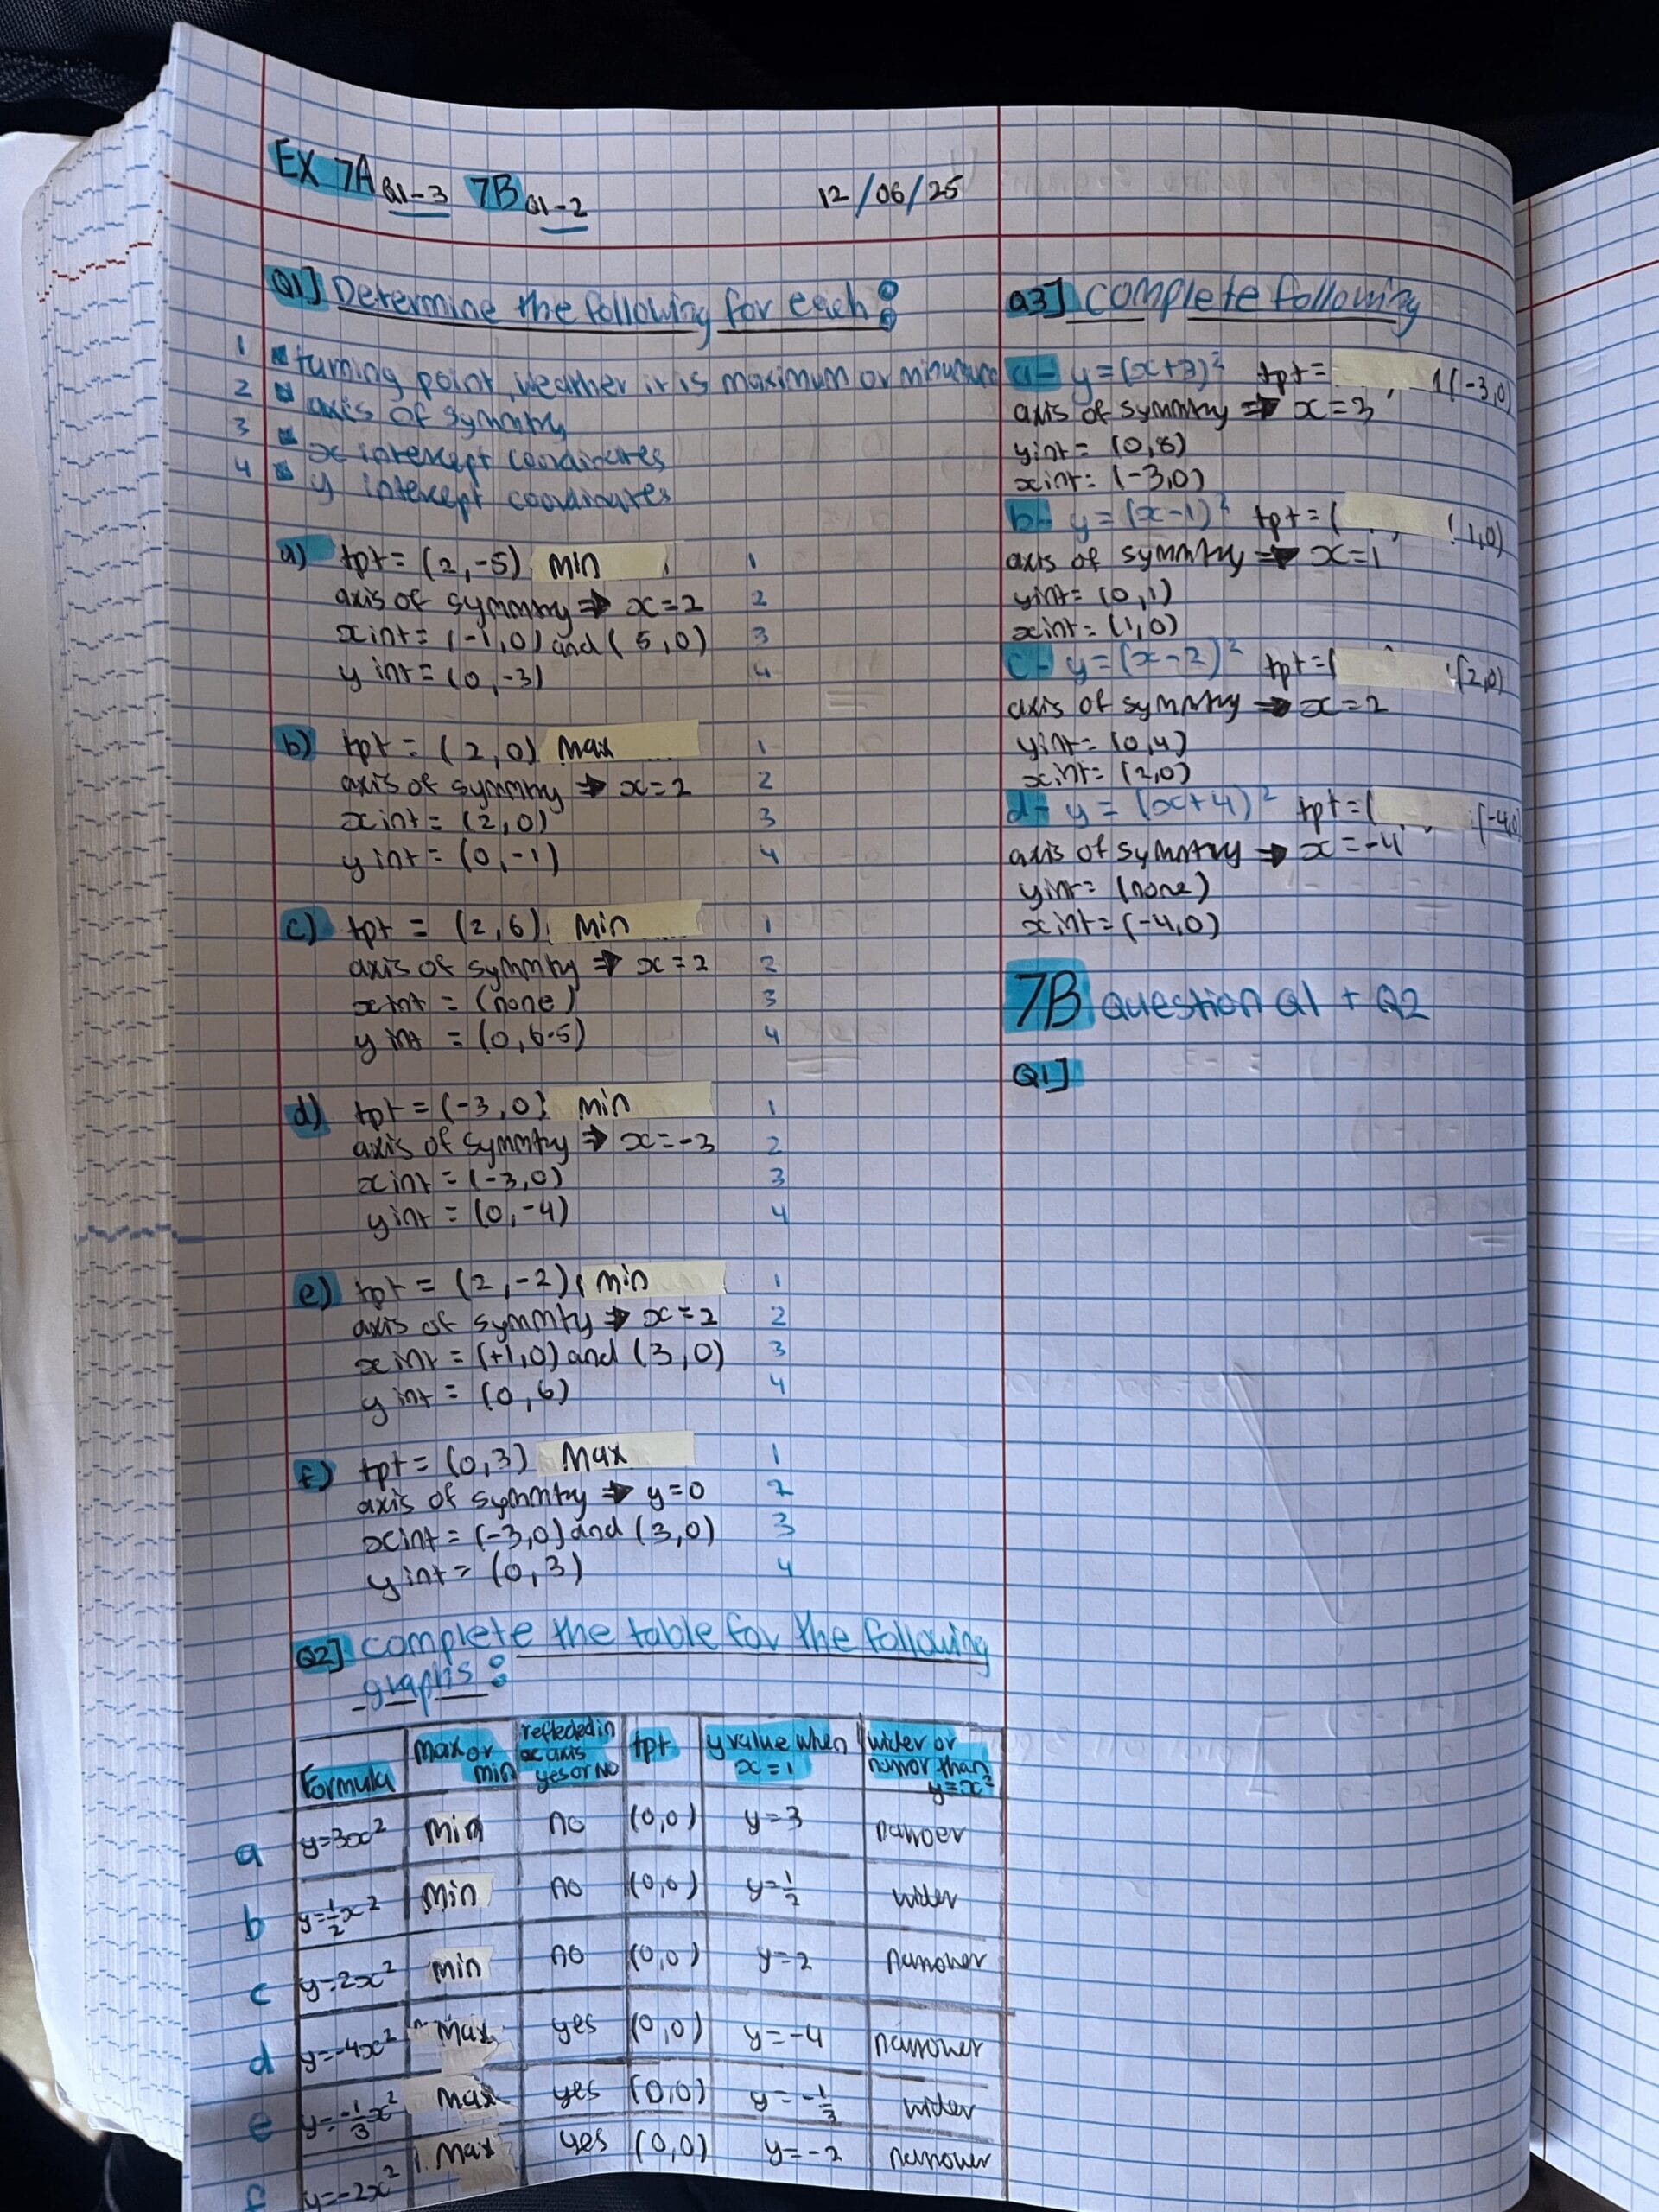 EX 7A Q1-3 7B Q1-2 12/06/25
Q1] Determine the following for each:
1 turning point, weather it is maximum or minimum
2 axis of symmtry
3 x intercept coordinates
4 y intercept coordinates
a) tpt = (2,-5) min 1
axis of symmtry ⇒ x=2 2
x int = (-1,0) and (5,0) 3
y int = (0,-3) 4
b) tpt = (2,0) Max 1
axis of symmtry ⇒ x=2 2
x int = (2,0) 3
y int = (0,-1) 4
c) tpt = (2,6) Min 1
axis of symmtry ⇒ x=2 2
x int = (none) 3
y int = (0,6.5) 4
d) tpt = (-3,0) min 1
axis of symmtry ⇒ x=-3 2
x int = (-3,0) 3
y int = (0,-4) 4
e) tpt = (2,-2) min 1
axis of symmty ⇒ x=2 2
x int = (+1,0) and (3,0) 3
y int = (0,6) 4
f) tpt = (0,3) Max 1
axis of symmtry ⇒ y=0 2
x int = (-3,0) and (3,0) 3
y int = (0,3) 4
Q2] complete the table for the following
graphs:
Formula max or min reflected in x axis yes or No tpt y value when x=1 wider or narror than y=x²
a y=3x² Min no (0,0) y=3 narroer
b y=½x² Min no (0,0) y=½ wider
c y=2x² min no (0,0) y=2 narrower
d y=-4x² Max yes (0,0) y=-4 narrower
e y=-⅓x² max yes (0,0) y=-⅓ wider
f y=-2x² Max yes (0,0) y=-2 narrower
Q3] complete following
a- y=(x+3)² tpt= (-3,0)
axis of symmtry ⇒ x=3
yint= (0,8)
xint= (-3,0)
b- y=(x-1)² tpt=( 1,0)
axis of symmtry ⇒ x=1
yint= (0,1)
xint= (1,0)
c- y=(x-2)² tpt=( (2,0)
axis of symmtry ⇒ x=2
yint= (0,4)
xint= (2,0)
d- y=(x+4)² tpt=( (-4,0)
axis of symmtry ⇒ x=-4
yint= (none)
xint=(-4,0)
7B question Q1 + Q2
Q1]